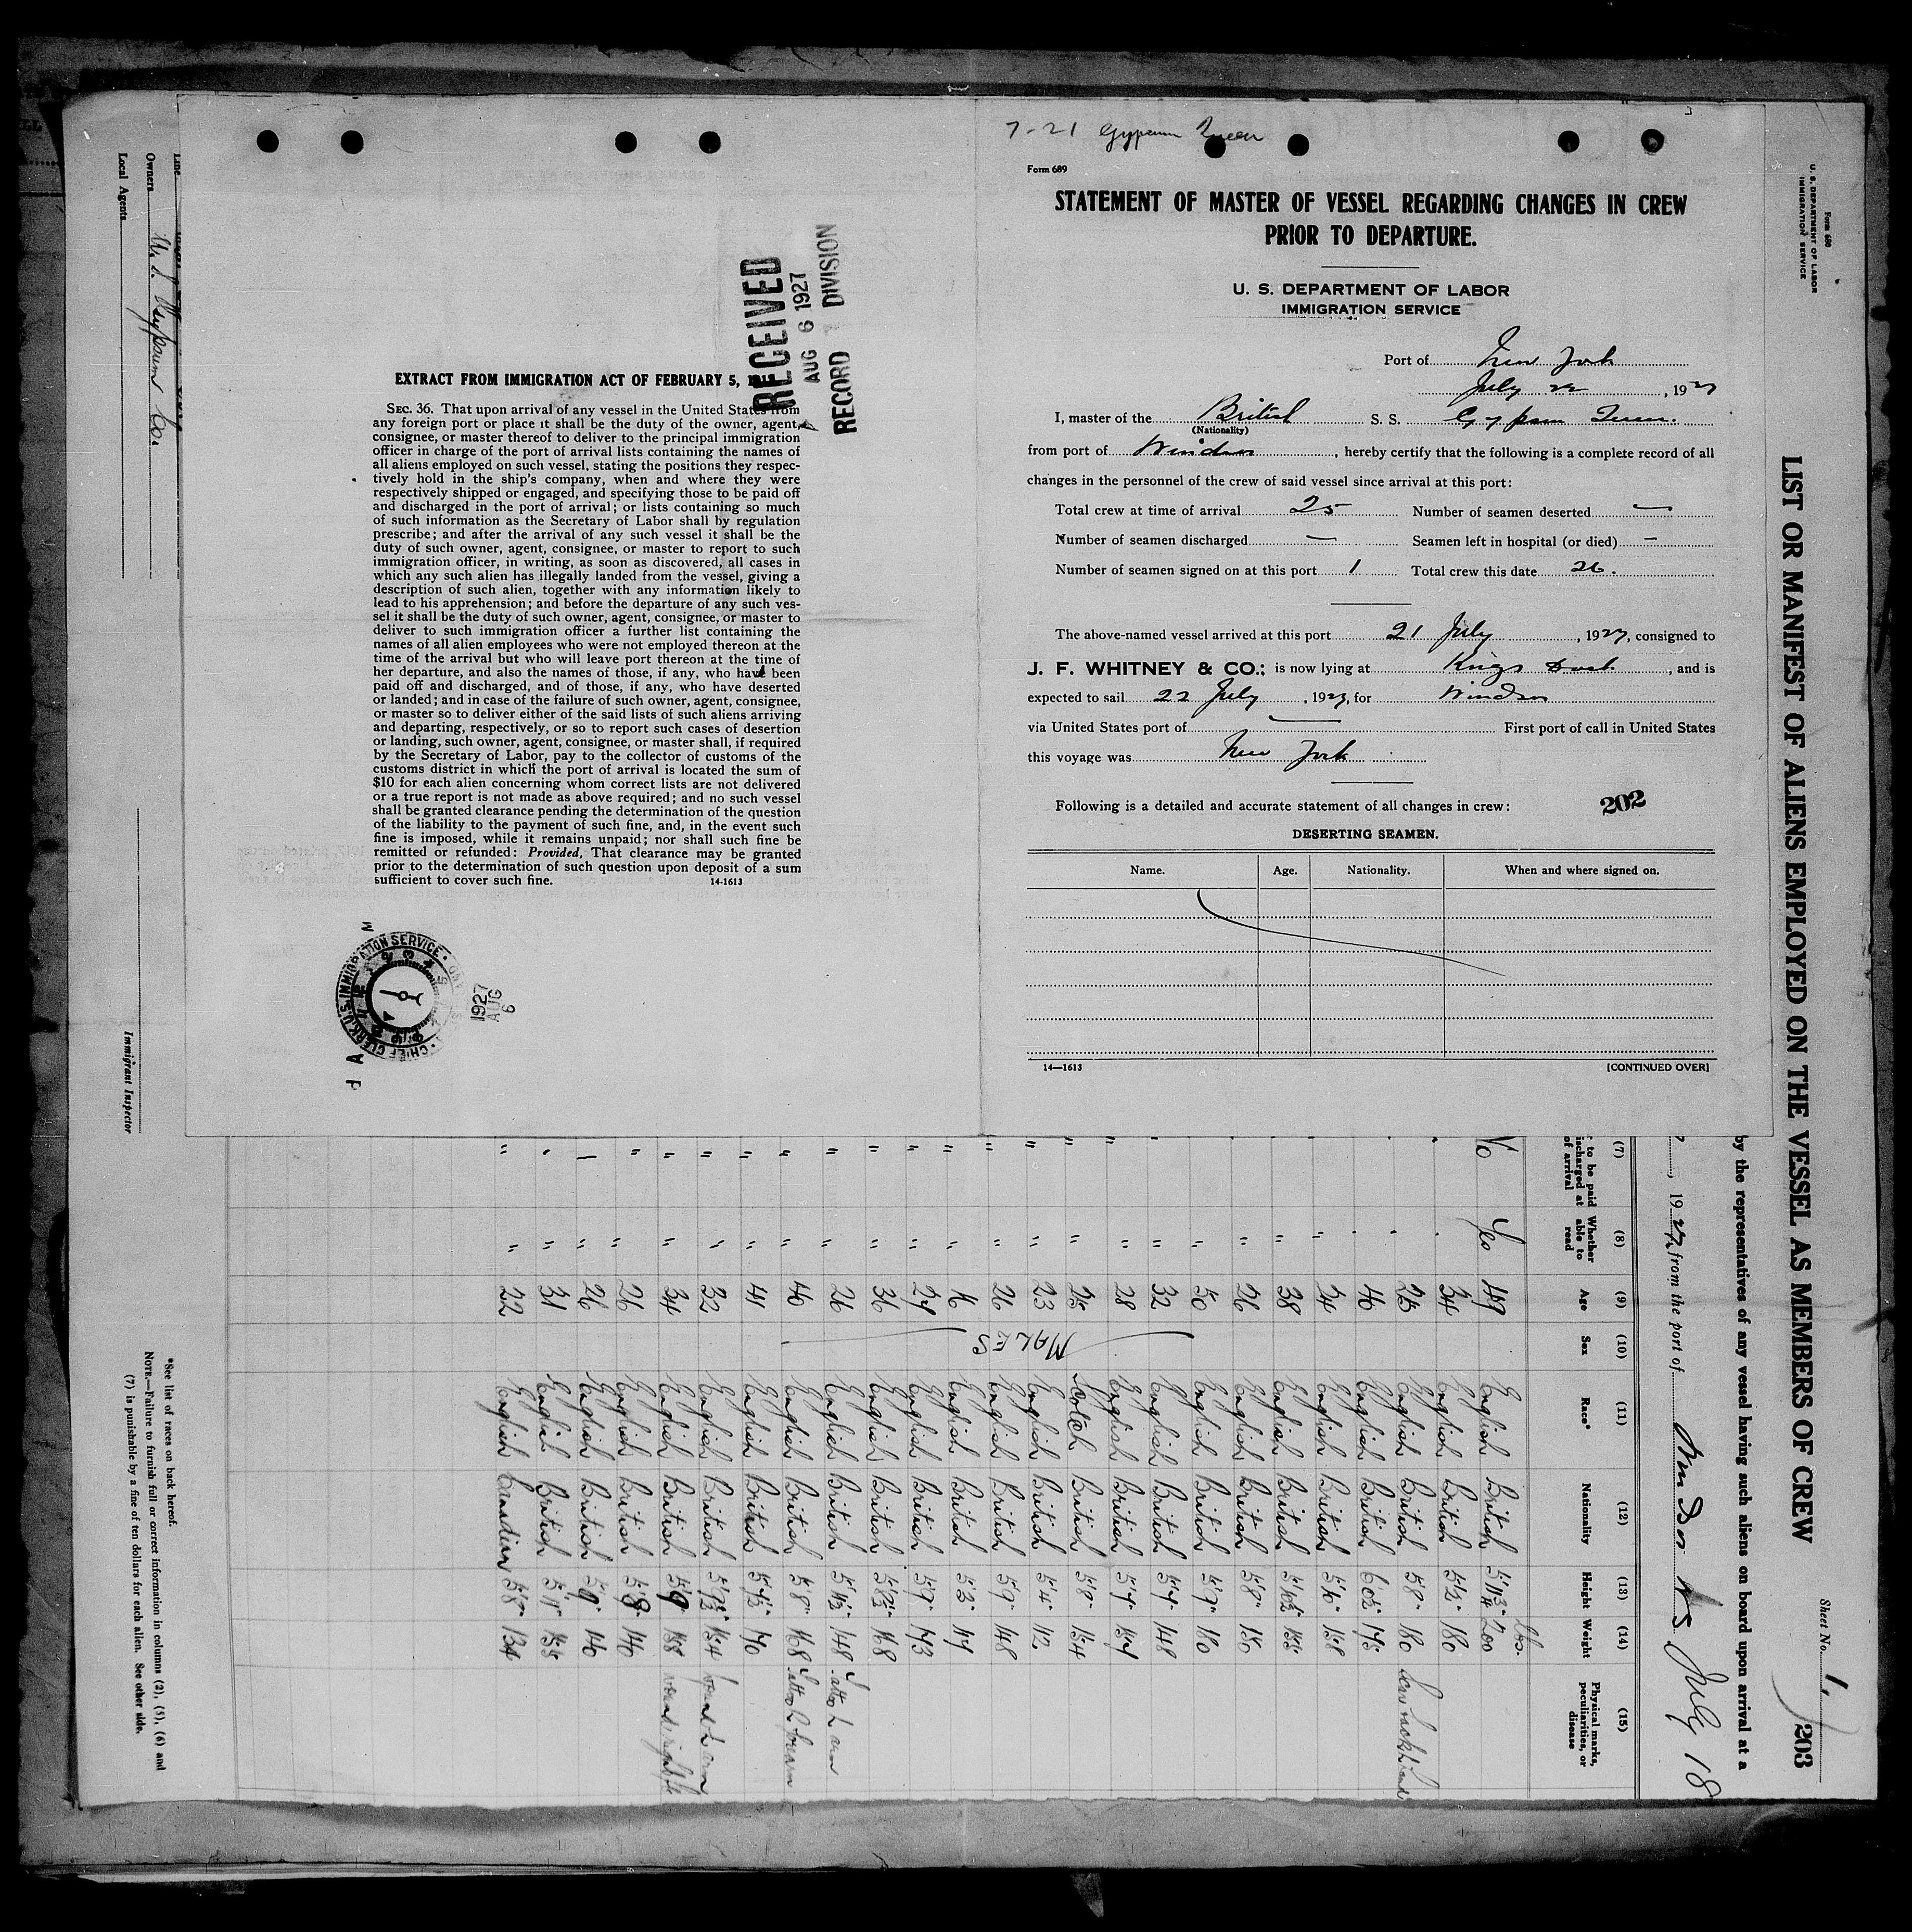 7-21 Gypsum Queen
Form 689
STATEMENT OF MASTER OF VESSEL REGARDING CHANGES IN CREW
PRIOR TO DEPARTURE.
U. S. DEPARTMENT OF LABOR
IMMIGRATION SERVICE
Port of New York
July 22, 1927
I, master of the British S. S. Gypsum Queen.
(Nationality)
from port of Windsor, hereby certify that the following is a complete record of all
changes in the personnel of the crew of said vessel since arrival at this port:
Total crew at time of arrival 25 Number of seamen deserted —
Number of seamen discharged — Seamen left in hospital (or died) —
Number of seamen signed on at this port 1 Total crew this date 26.
The above-named vessel arrived at this port 21 July, 1927, consigned to
J. F. WHITNEY & CO.; is now lying at Kings Dock, and is
expected to sail 22 July, 1927, for Windsor
via United States port of — First port of call in United States
this voyage was New York
Following is a detailed and accurate statement of all changes in crew: 202
DESERTING SEAMEN.
Name. Age. Nationality. When and where signed on.
14—1613 [CONTINUED OVER]
RECEIVED
AUG 6 1927
RECORD DIVISION
EXTRACT FROM IMMIGRATION ACT OF FEBRUARY 5,
SEC. 36. That upon arrival of any vessel in the United States from
any foreign port or place it shall be the duty of the owner, agent,
consignee, or master thereof to deliver to the principal immigration
officer in charge of the port of arrival lists containing the names of
all aliens employed on such vessel, stating the positions they respec-
tively hold in the ship's company, when and where they were
respectively shipped or engaged, and specifying those to be paid off
and discharged in the port of arrival; or lists containing so much
of such information as the Secretary of Labor shall by regulation
prescribe; and after the arrival of any such vessel it shall be the
duty of such owner, agent, consignee, or master to report to such
immigration officer, in writing, as soon as discovered, all cases in
which any such alien has illegally landed from the vessel, giving a
description of such alien, together with any information likely to
lead to his apprehension; and before the departure of any such ves-
sel it shall be the duty of such owner, agent, consignee, or master to
deliver to such immigration officer a further list containing the
names of all alien employees who were not employed thereon at the
time of the arrival but who will leave port thereon at the time of
her departure, and also the names of those, if any, who have been
paid off and discharged, and of those, if any, who have deserted
or landed; and in case of the failure of such owner, agent, consignee,
or master so to deliver either of the said lists of such aliens arriving
and departing, respectively, or so to report such cases of desertion
or landing, such owner, agent, consignee, or master shall, if required
by the Secretary of Labor, pay to the collector of customs of the
customs district in which the port of arrival is located the sum of
$10 for each alien concerning whom correct lists are not delivered
or a true report is not made as above required; and no such vessel
shall be granted clearance pending the determination of the question
of the liability to the payment of such fine, and, in the event such
fine is imposed, while it remains unpaid; nor shall such fine be
remitted or refunded: Provided, That clearance may be granted
prior to the determination of such question upon deposit of a sum
sufficient to cover such fine. 14-1613
CHIEF CLERK. U.S. IMMIGRATION SERVICE
1927
AUG
6
Form 680
U. S. DEPARTMENT OF LABOR
IMMIGRATION SERVICE
Sheet No. 1, 203
LIST OR MANIFEST OF ALIENS EMPLOYED ON THE VESSEL AS MEMBERS OF CREW
by the representatives of any vessel having such aliens on board upon arrival at a
, 1927, from the port of Windsor NS July 18
(7) (8) (9) (10) (11) (12) (13) (14) (15)
to be paid
discharged at
of arrival
Whether
able to
read
Age Sex Race* Nationality Height Weight
Physical marks,
peculiarities, or
disease
lbs.
No Yes 49 English British 5'11 3/4" 200
34 English British 5'2" 180
25 English British 5'8" 180
46 English British 6'0½" 175
24 English British 5'6" 158
" 38 English British 5'10½" 155
" 26 English British 5'8" 150
" 50 English British 5'9" 180
" 32 English British 5'7" 148
" 28 English British 5'7" 157
" 25 Scotch British 5'8" 154
" 23 English British 5'4" 112
" " 26 English British 5'9" 148
" " 16 English British 5'3" 117
" " 27 English British 5'9" 173
" " 36 English British 5'8½" 168
" " 26 English British 5'11½" 148 Tattoo L arm
" " 40 English British 5'8" 168 Tattoo L forearm
" " 41 English British 5'7½" 170
" " 32 English British 5'9½" 154 wound L arm
" " 34 English British 5'9" 155 wound right
" " 26 English British 5'8" 140
" 26 English British 5'9" 146
" " 31 English British 5'11" 155
" " 22 English Canadian 5'8" 134
MALES
*See list of races on back hereof.
NOTE.—Failure to furnish full or correct information in columns (2), (5), (6) and
(7) is punishable by a fine of ten dollars for each alien. See other side.
Immigrant Inspector
Line
Owners U.S. Gypsum Co.
Local Agents